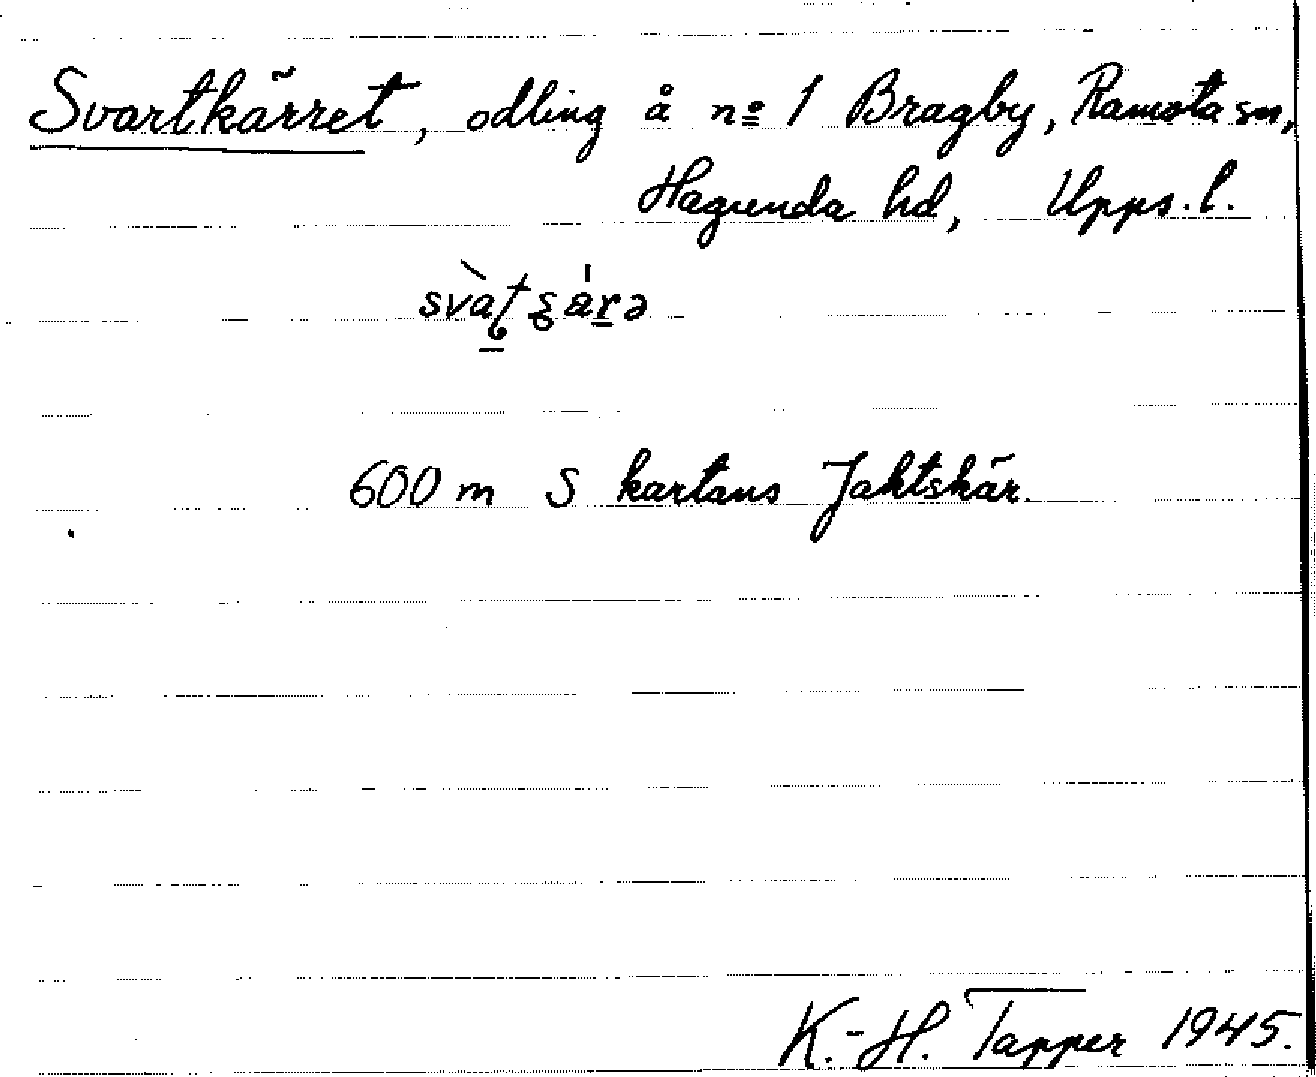 Svartkärret, odling å nº 1 Bragby, Ramsta sn,
Hagunda hd, Upps. l.
600 m S kartans Jaktskär.
K.-H. Tapper 1945.